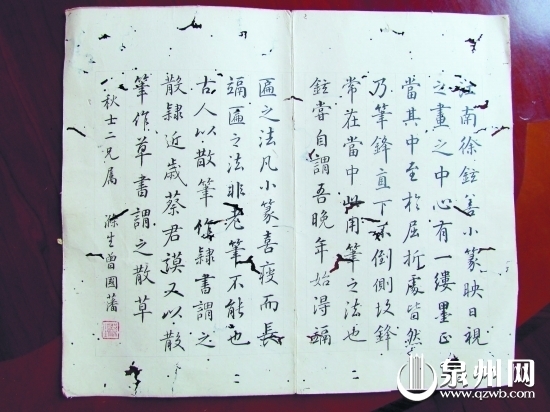 江南徐鉉善小篆映日視
之畫之中心有一縷墨正
當其中至於屈折處皆然
乃筆鋒直下不倒側故鋒
常在當中此用筆之法也
鉉嘗自謂吾晚年始得竵
匾之法凡小篆喜瘦而長
竵匾之法非老筆不能也
古人以散筆作隸書謂之
散隸近歲蔡君謨又以散
筆作草書謂之散草
秋士二兄属 滌生曾國藩
泉州网
www.qzwb.com